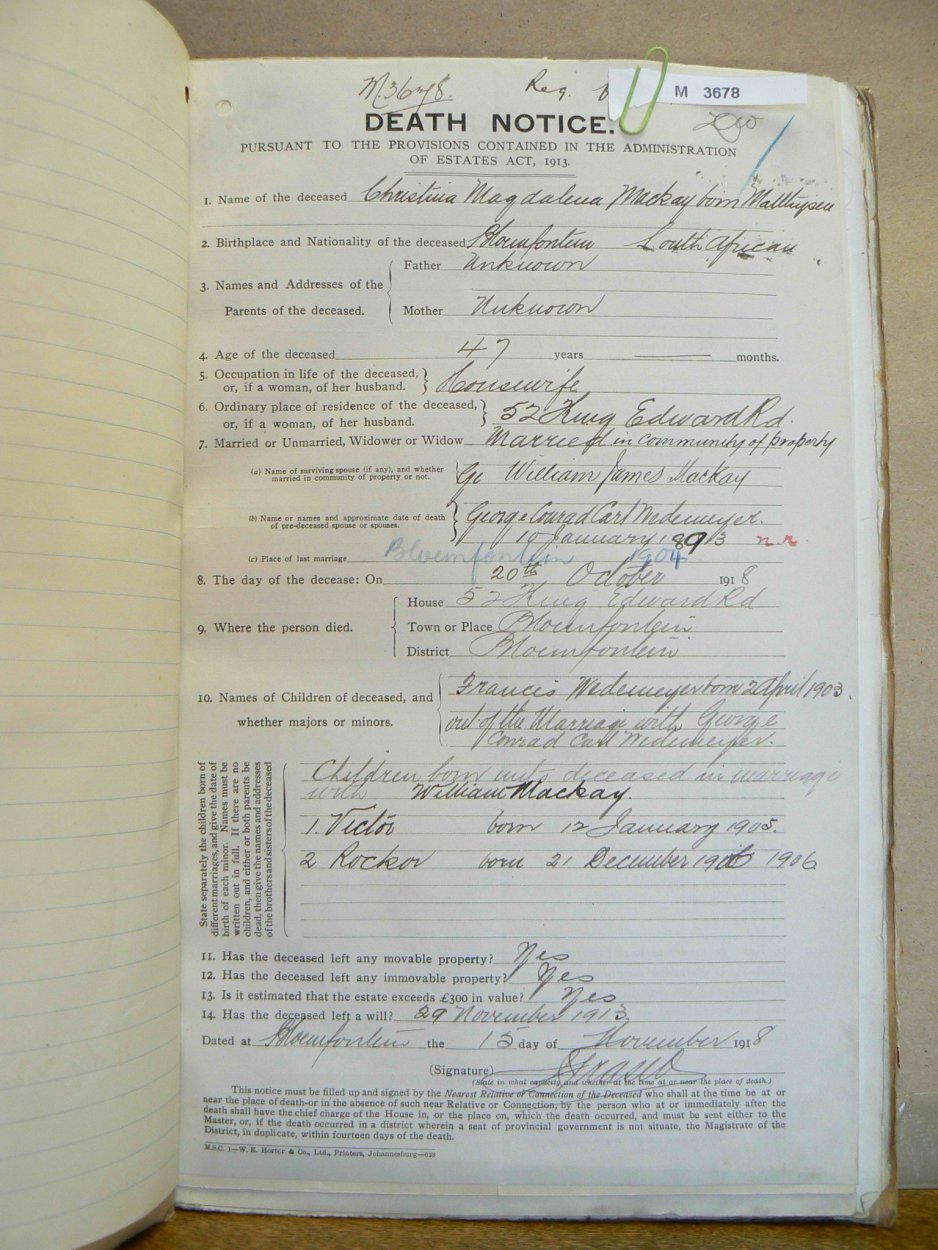 M3678. Req.
M 3678
DEATH NOTICE.
PURSUANT TO THE PROVISIONS CONTAINED IN THE ADMINISTRATION
OF ESTATES ACT, 1913.
1. Name of the deceased Christina Magdalena Mackay born Matthysen
2. Birthplace and Nationality of the deceased Bloemfontein South African
3. Names and Addresses of the Parents of the deceased.
Father Unknown
Mother Unknown
4. Age of the deceased 47 years — months.
5. Occupation in life of the deceased, or, if a woman, of her husband. } Housewife
6. Ordinary place of residence of the deceased, or, if a woman, of her husband. } 52 King Edward Rd.
7. Married or Unmarried, Widower or Widow Married in community of property
(a) Name of surviving spouse (if any), and whether married in community of property or not. } Ge William James Mackay
(b) Name or names and approximate date of death of pre-deceased spouse or spouses. } George Conrad Carl Wedemeyer.
10 January 1893 n.r.
(c) Place of last marriage Bloemfontein 1904
8. The day of the decease: On 20th October 1918
9. Where the person died.
House 52 King Edward Rd
Town or Place Bloemfontein
District Bloemfontein
10. Names of Children of deceased, and whether majors or minors.
Francis Wedemeyer born 2 April 1903.
out of the Marriage with George
Conrad Carl Wedemeyer.
State separately the children born of
different marriages, and give the date of
birth of each minor. Names must be
written out in full. If there are no
children, and either or both parents be
dead, then give the names and addresses
of the brothers and sisters of the deceased
Children born unto deceased in marriage
with William Mackay.
1. Victor born 12 January 1905.
2 Rockor born 21 December 1906
11. Has the deceased left any movable property? Yes
12. Has the deceased left any immovable property? Yes
13. Is it estimated that the estate exceeds £300 in value? Yes
14. Has the deceased left a will? 29 November 1913.
Dated at Bloemfontein the 15 day of November 1918
(Signature)
(State in what capacity and whether at the time at or near the place of death.)
This notice must be filled up and signed by the Nearest Relative or Connection of the Deceased who shall at the time be at or
near the place of death—or in the absence of such near Relative or Connection, by the person who at or immediately after the
death shall have the chief charge of the House in, or the place on, which the death occurred, and must be sent either to the
Master, or, if the death occurred in a district wherein a seat of provincial government is not situate, the Magistrate of the
District, in duplicate, within fourteen days of the death.
M.S.C. 1—W. E. Horter & Co., Ltd., Printers, Johannesburg—628